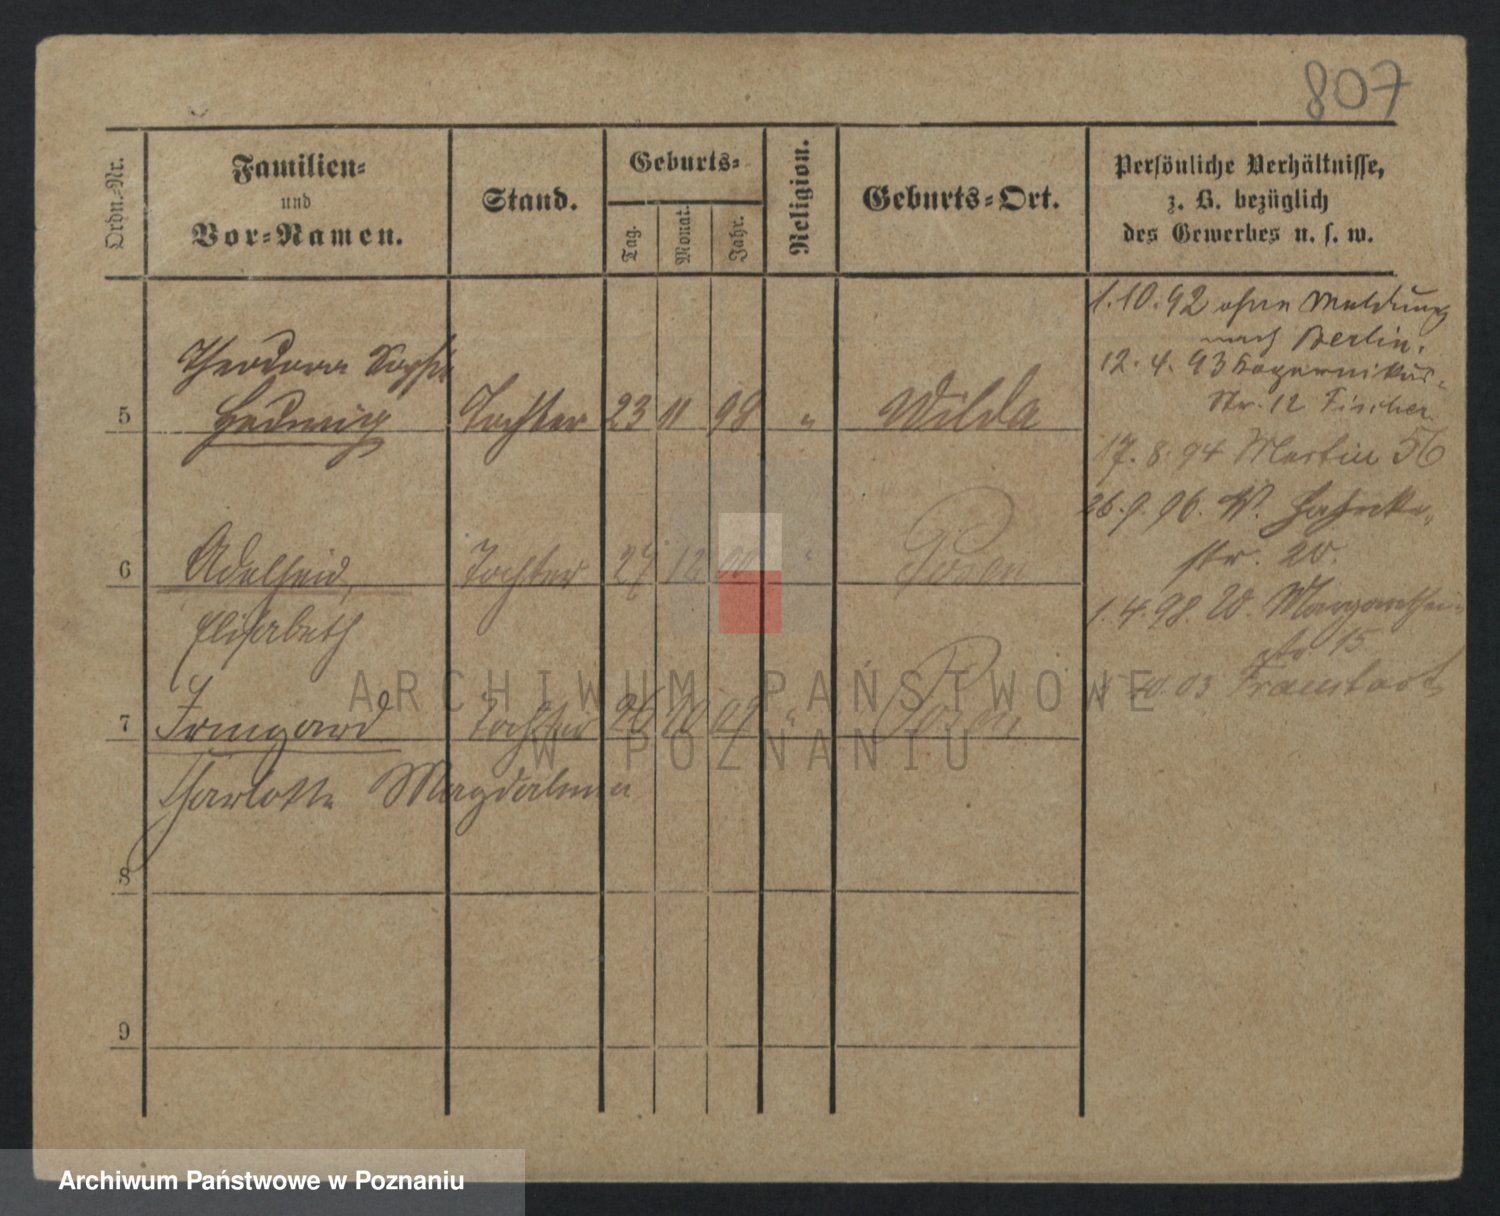 807
Ordn.-Nr.
Familien-
und
Vor-Namen.
Stand.
Geburts-
Tag.
Monat.
Jahr.
Religion.
Geburts-Ort.
Persönliche Verhältnisse,
z. B. bezüglich
des Gewerbes u. s. w.
1.10.92 ohne Meldung
nach Berlin.
12.4.93
Str. 12 Fischer
17.8.94 Martin 56
26.9.96. W.
str. 20.
1.4.98. W. Margarethen-
str 15
03 Fraustadt
Theodora Sophie
5 Hedwig Tochter 23 11 98 " Wilda
6 Adelheid, Tochter 12 00 " Posen
Elisabeth
7 Irmgard Tochter 26 10 " Posen
Charlotte Magdalena
8
9
ARCHIWUM PAŃSTWOWE
W POZNANIU
Archiwum Państwowe w Poznaniu